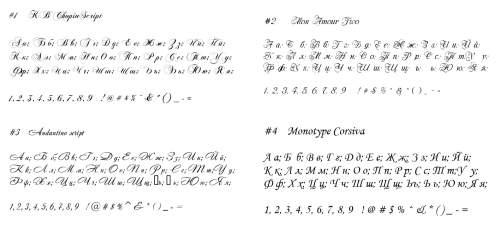 #1 K B Chopin Script
Аа; Бб; Вв; Гг; Дд; Ее; Жж; Зз; Ии; Йй;
Кк; Лл; Мм; Нн; Оо; Пп; Рр; Сс; Тт; Уу;
Фф; Хх; Цц; Чч; Шш; Щщ; Ъъ; Ьь; Юю; Яя;
1, 2, 3, 4, 5, 6, 7, 8, 9 ! @ # $ % ^ & * ( ) _ - =
#2 Mon Amour Two
Аа; Бб; Вв; Гг; Дд; Ее; Жж; Зз; Ии; Йй;
Кк; Лл; Мм; Нн; Оо; Пп; Рр; Сс; Тт; Уу;
Фф; Хх; Цц; Чч; Шш; Щщ; ъ; ь; Юю; Яя;
1, 2, 3, 4, 5, 6, 7, 8, 9 ! # $ % ^ & * ( ) _ - =
#3 Andantino script
Аа; Бб; Вв; Гг; Дд; Ее; Жж; Зз; Ии; Йй;
Кк; Лл; Мм; Нн; Оо; Пп; Рр; Сс; Тт; Уу;
Фф; Хх; Цц; Чч; Шш; Щщ; ъ; ь; Юю; Яя;
1, 2, 3, 4, 5, 6, 7, 8, 9 ! @ # $ % ^ & * ( ) _ - =
#4 Monotype Corsiva
Аа; Бб; Вв; Гг; Дд; Ее; Жж; Зз; Ии; Йй;
Кк; Лл; Мм; Нн; Оо; Пп; Рр; Сс; Тт; Уу;
Фф; Хх; Цц; Чч; Шш; Щщ; Ъъ; Ьь; Юю; Яя;
1, 2, 3, 4, 5, 6, 7, 8, 9 ! @ # $ % ^ & * ( ) _ - =